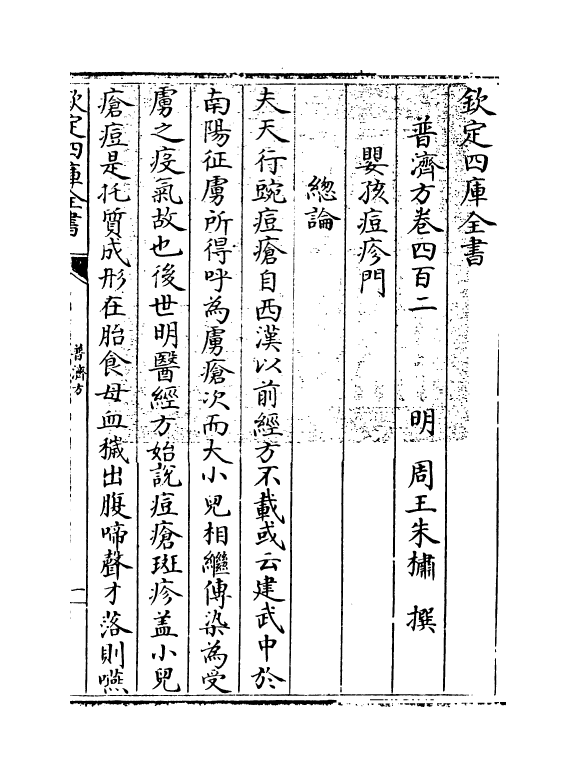 欽定四庫全書
普濟方卷四百二　明　周王朱橚　撰
嬰孩痘疹門
總論
夫天行豌痘瘡自西漢以前經方不載或云建武中於
南陽征虜所得呼為虜瘡次而大小兒相繼傳染為受
虜之疫氣故也後世明醫經方始說痘瘡斑疹盖小兒
瘡痘是托質成形在胎食母血穢出腹啼聲才落則嚥
欽定四庫全書
普濟方
一